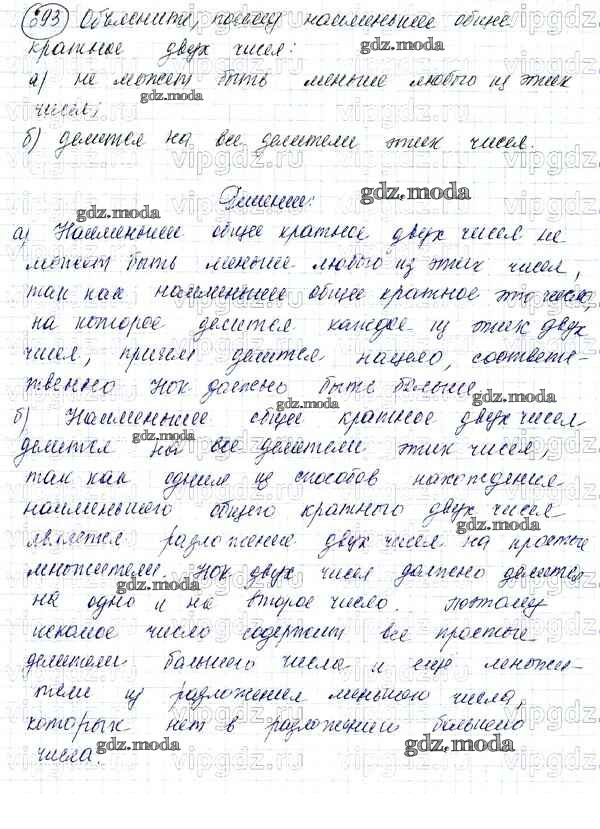 893 Объясните, почему наименьшее общее
кратное двух чисел:
а) не может быть меньше любого из этих
чисел;
б) делится на все делители этих чисел.
Решение:
а) Наименьшее общее кратное двух чисел не
может быть меньше любого из этих чисел,
так как наименьшее общее кратное это число,
на которое делится каждое из этих двух
чисел, причем делится нацело, соответс-
твенно НОК должно быть больше.
б) Наименьшее общее кратное двух чисел
делится на все делители этих чисел,
так как одним из способов нахождения
наименьшего общего кратного двух чисел
является разложение двух чисел на простые
множители. НОК двух чисел должно делится
на одно и на второе число. Поэтому
искомое число содержит все простые
делители большего числа и ещё множи-
тели из разложения меньшего числа,
которых нет в разложении большего
числа.
gdz.moda
vipgdz.ru